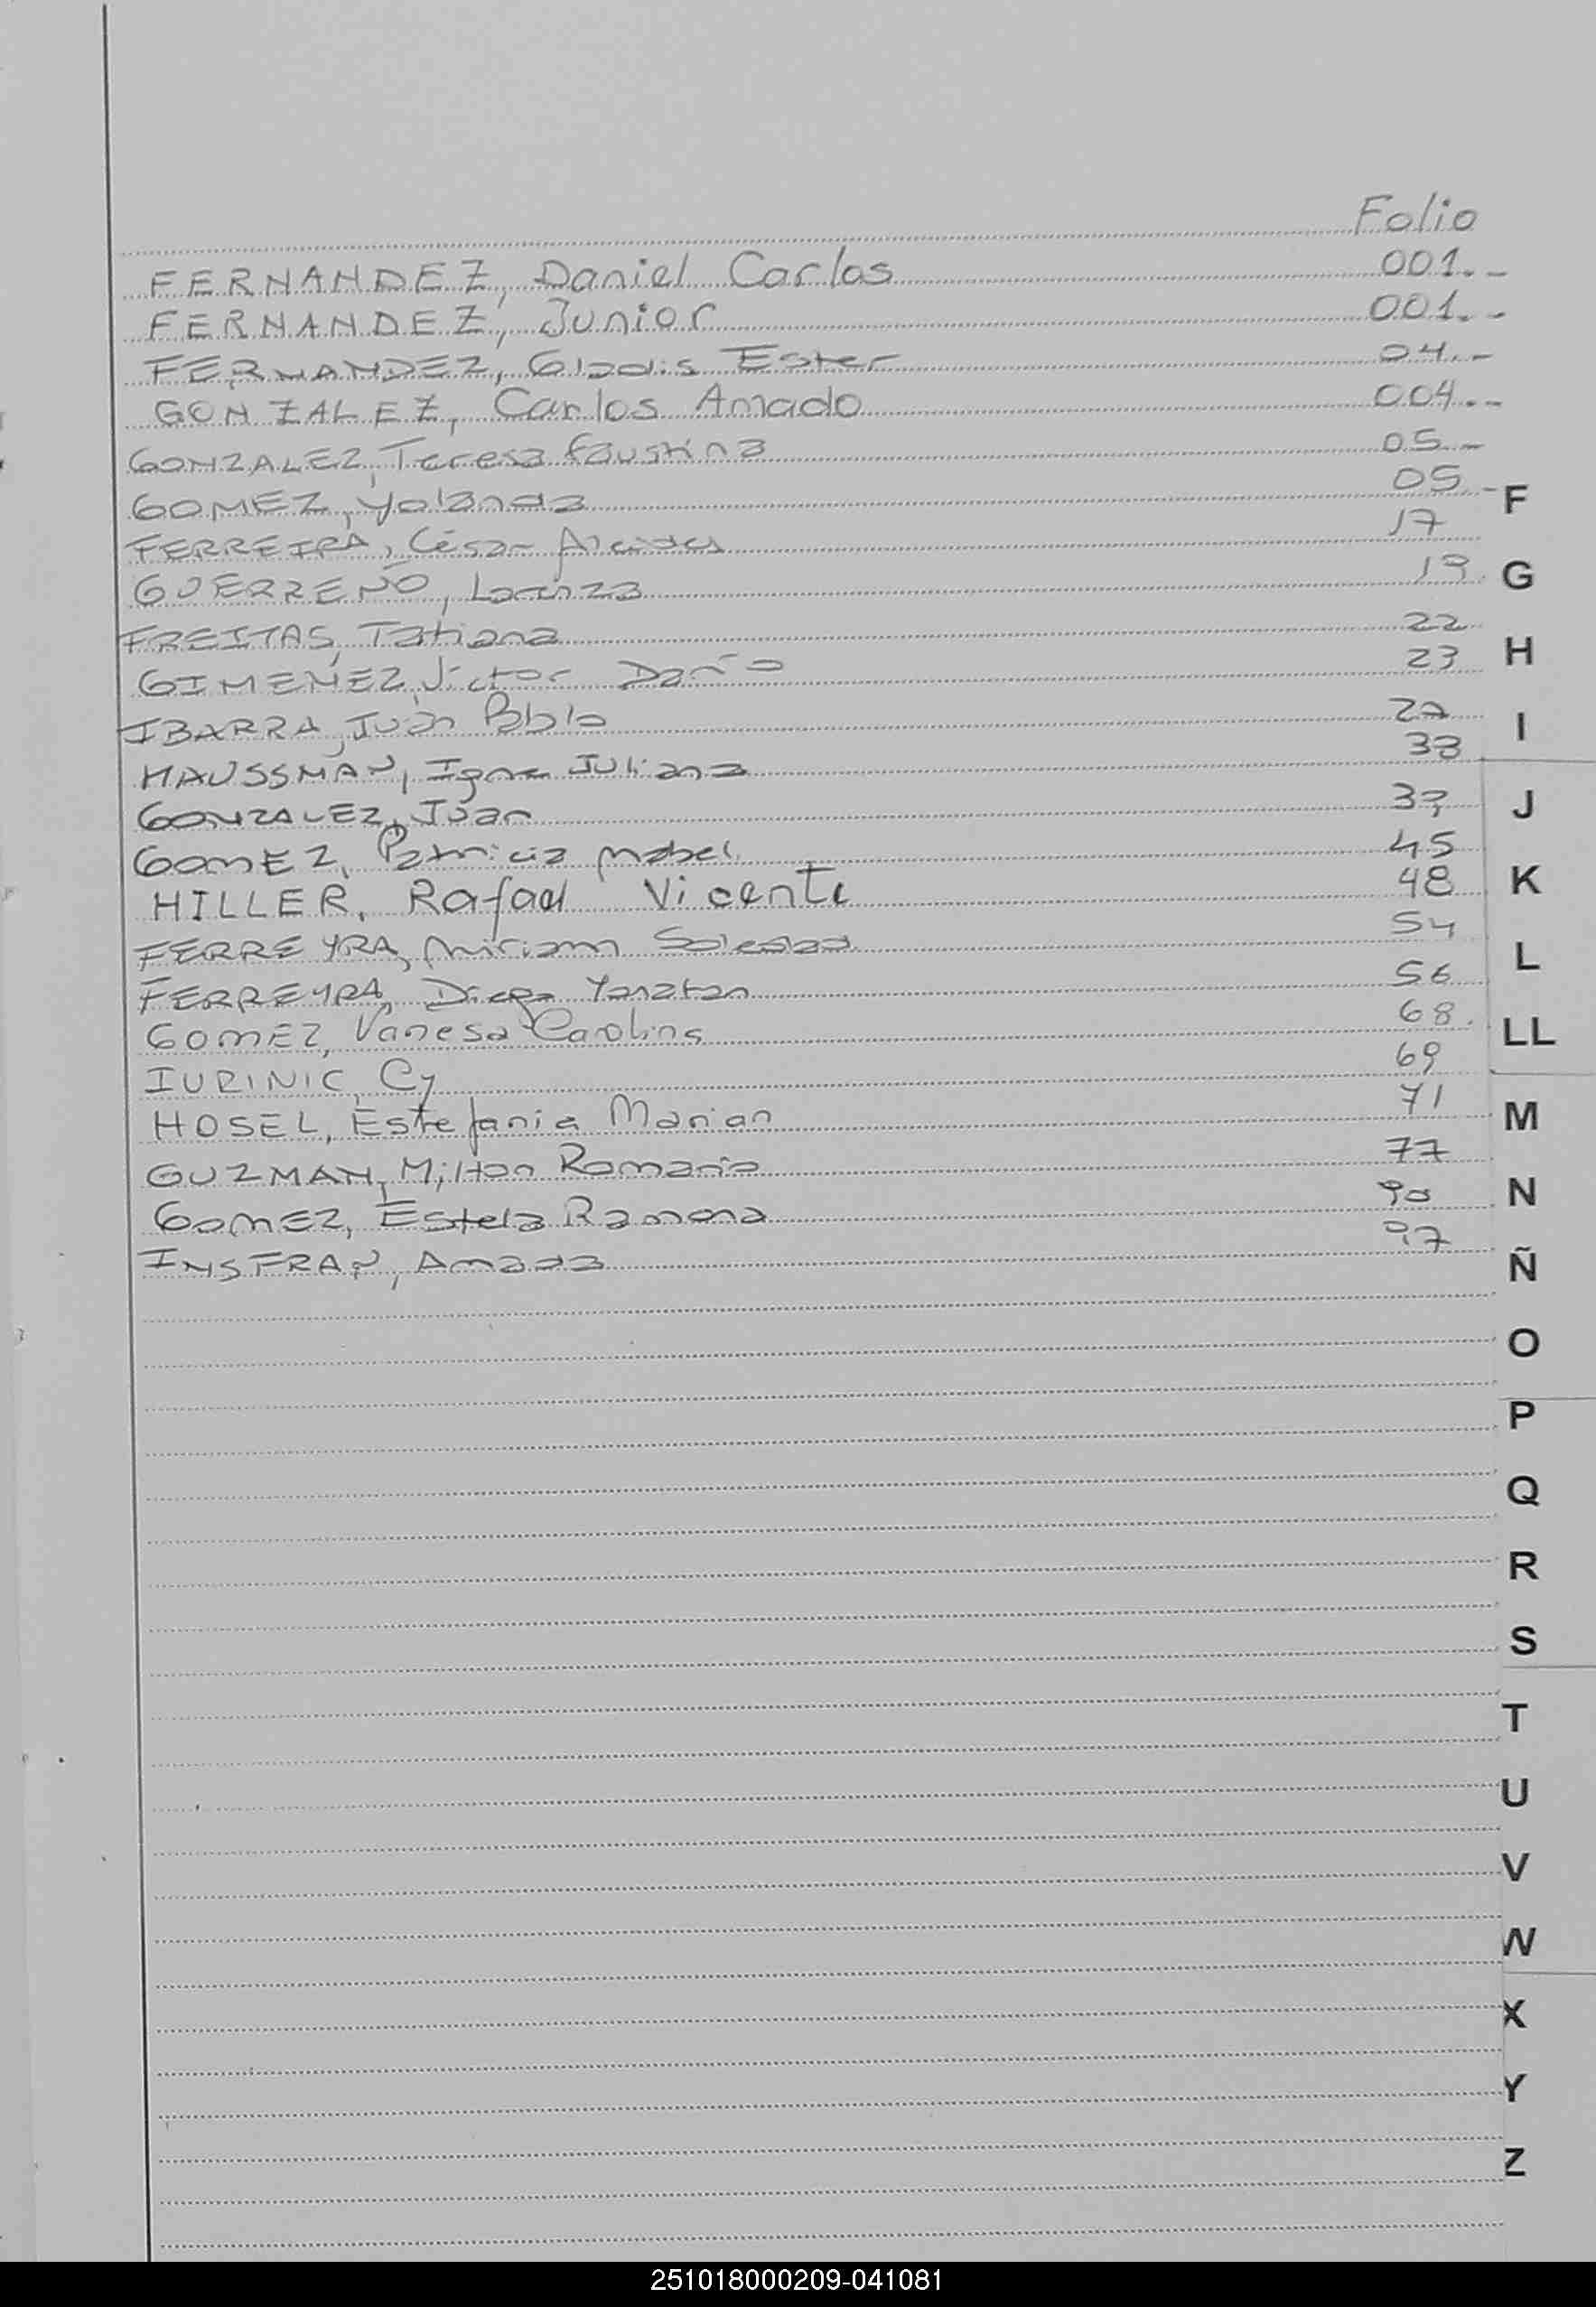 Folio
FERNANDEZ, Daniel Carlos 001.-
FERNANDEZ, Junior 001.-
FERNANDEZ, Gladis Ester 04.-
GONZALEZ, Carlos Amado 004.-
GONZALEZ, Teresa Faustina 05-
GOMEZ, Yolanda 05-
F
FERREIRA, César Alcides 17
GUERREÑO, Lorenza 19
G
FREITAS, Tatiana 22
H
GIMENEZ, Victor Darío 23
IBARRA, Juan Pablo 27
I
HAUSSMAN, Juliana 33
GONZALEZ, Juan 37
J
GOMEZ, Patricia Mabel 45
HILLER, Rafael Vicente 48
K
FERREYRA, Miriam Soledad 54
L
FERREYRA, Diego Yonatan 56
GOMEZ, Vanesa Carolina 68.
LL
IURINIC, Cy 69
HOSEL, Estefania Marian 71
M
GUZMAN, Milton Romario 77
GOMEZ, Estela Ramona 90
N
INSFRAN, Amada 97
Ñ
O
P
Q
R
S
T
U
V
W
X
Y
Z
251018000209-041081